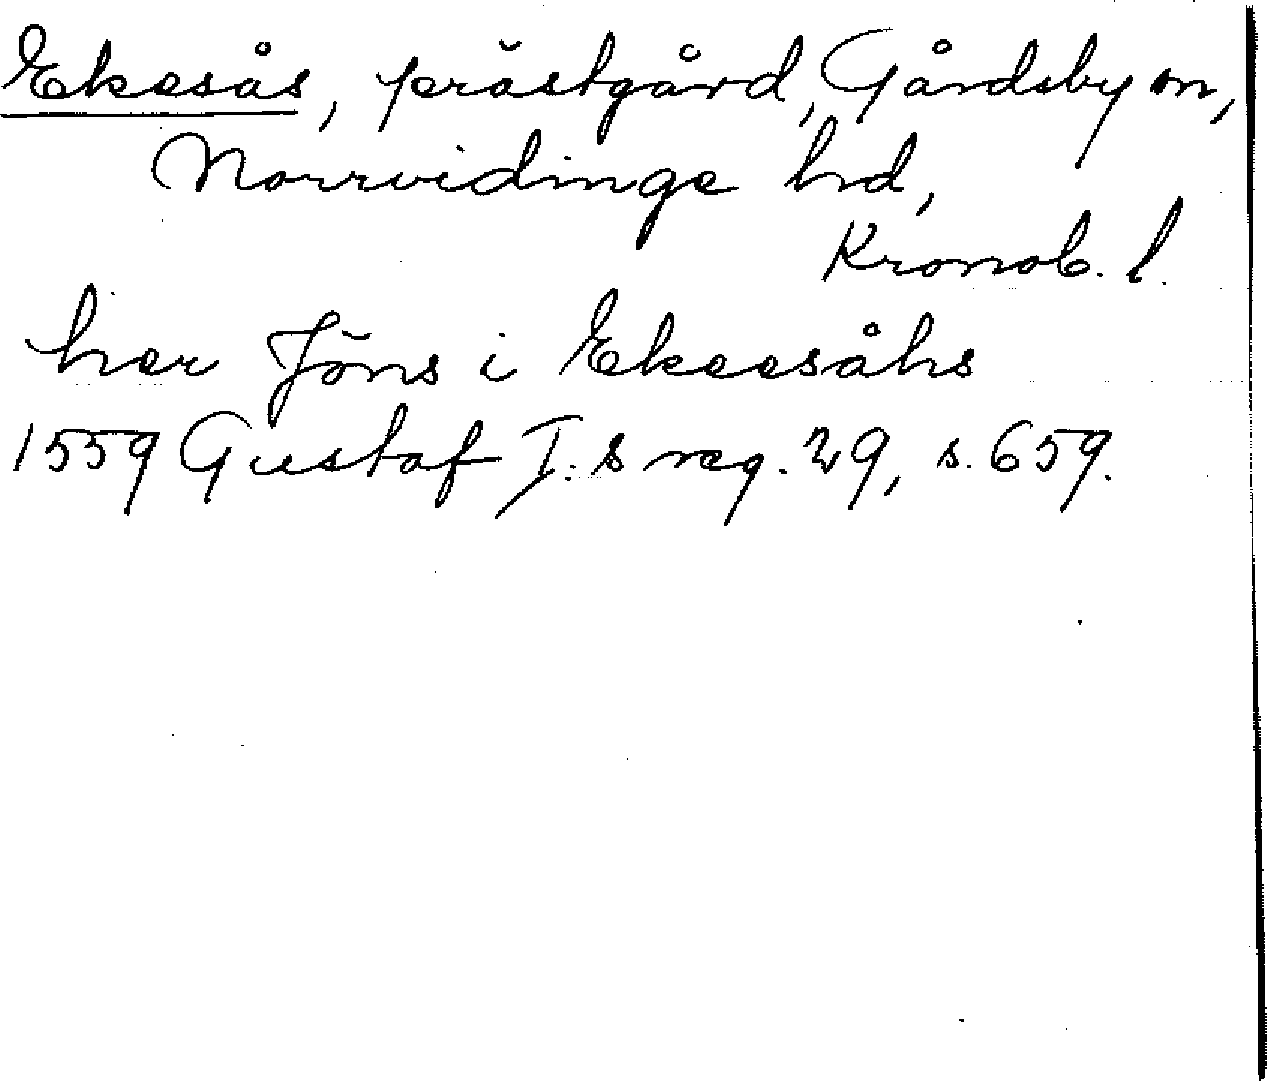 Ekesås, prästgård, Gårdsby sn,
Norrvidinge hd,
Kronob. l.
her Jöns i Ekeesåhs
1559 Gustaf I:s reg. 29, s. 659.